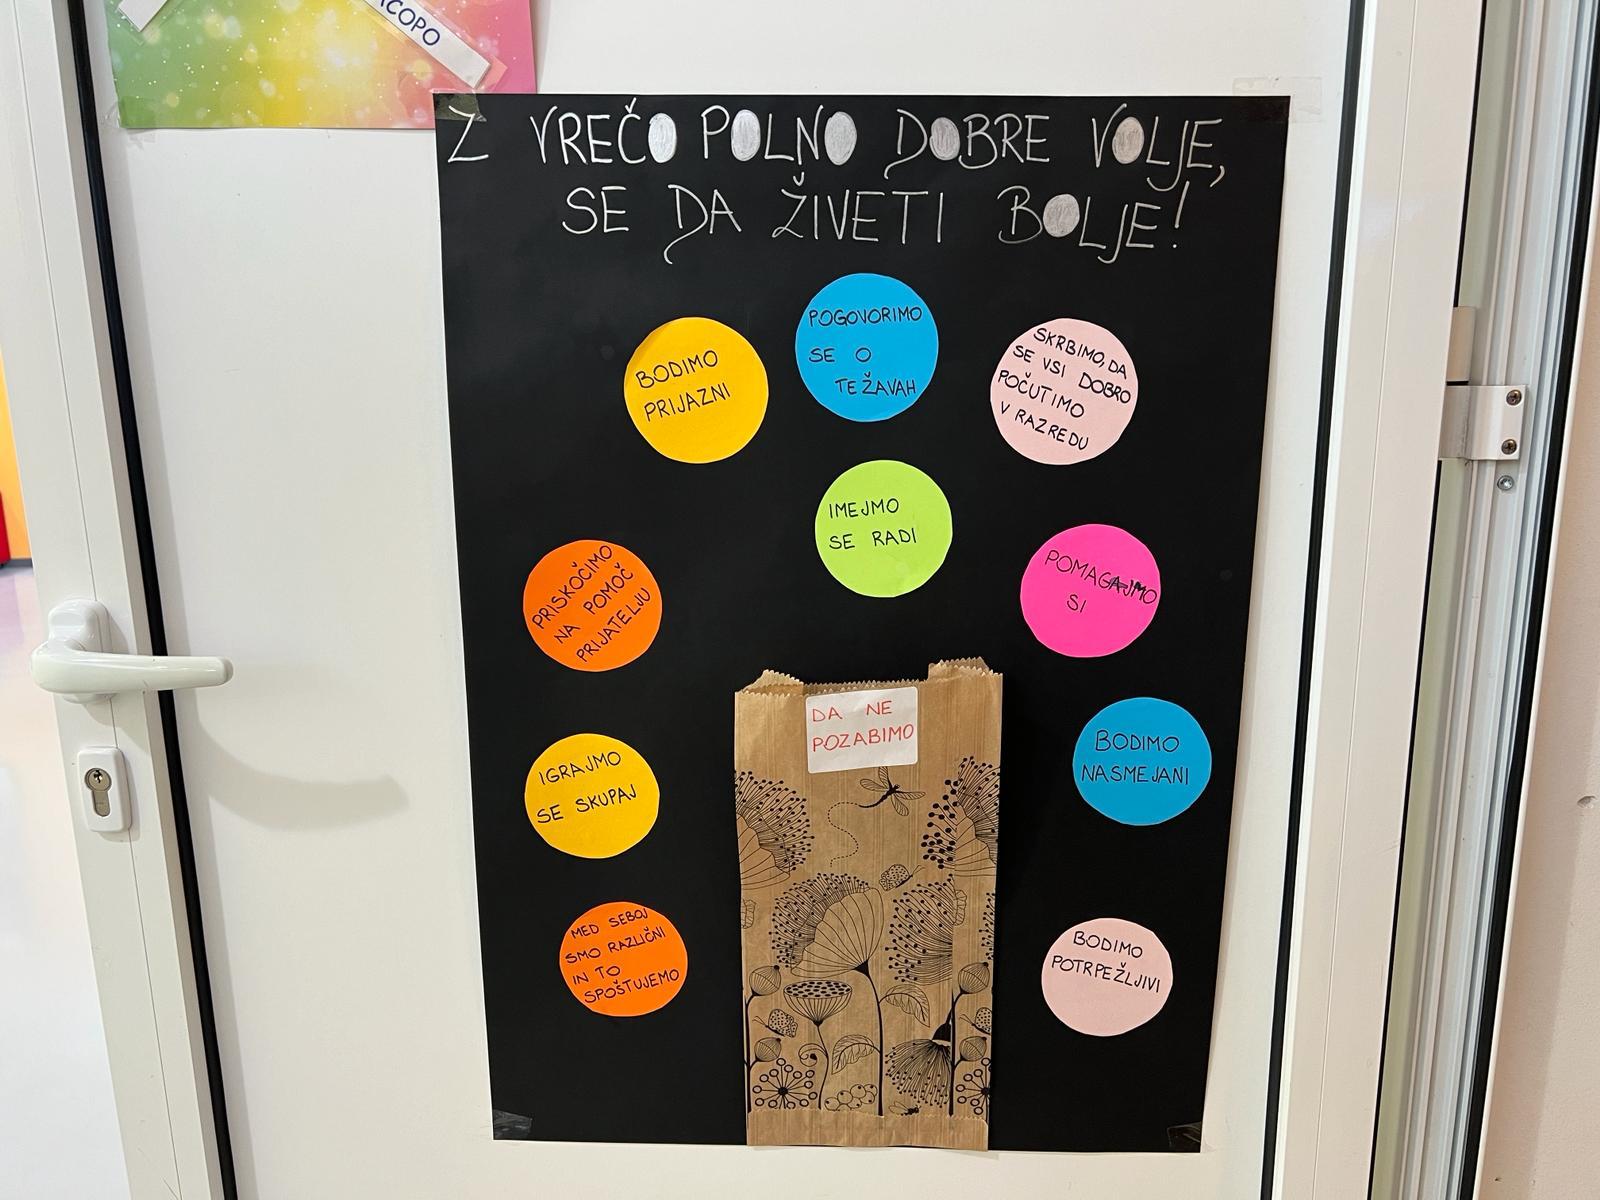 Z VREČO POLNO DOBRE VOLJE,
SE DA ŽIVETI BOLJE!
BODIMO
PRIJAZNI
POGOVORIMO
SE O
TEŽAVAH
SKRBIMO, DA
SE VSI DOBRO
POČUTIMO
V RAZREDU
IMEJMO
SE RADI
PRISKOČIMO
NA POMOČ
PRIJATELJU
POMAGAJMO
SI
DA NE
POZABIMO
IGRAJMO
SE SKUPAJ
BODIMO
NASMEJANI
MED SEBOJ
SMO RAZLIČNI
IN TO
SPOŠTUJEMO
BODIMO
POTRPEŽLJIVI